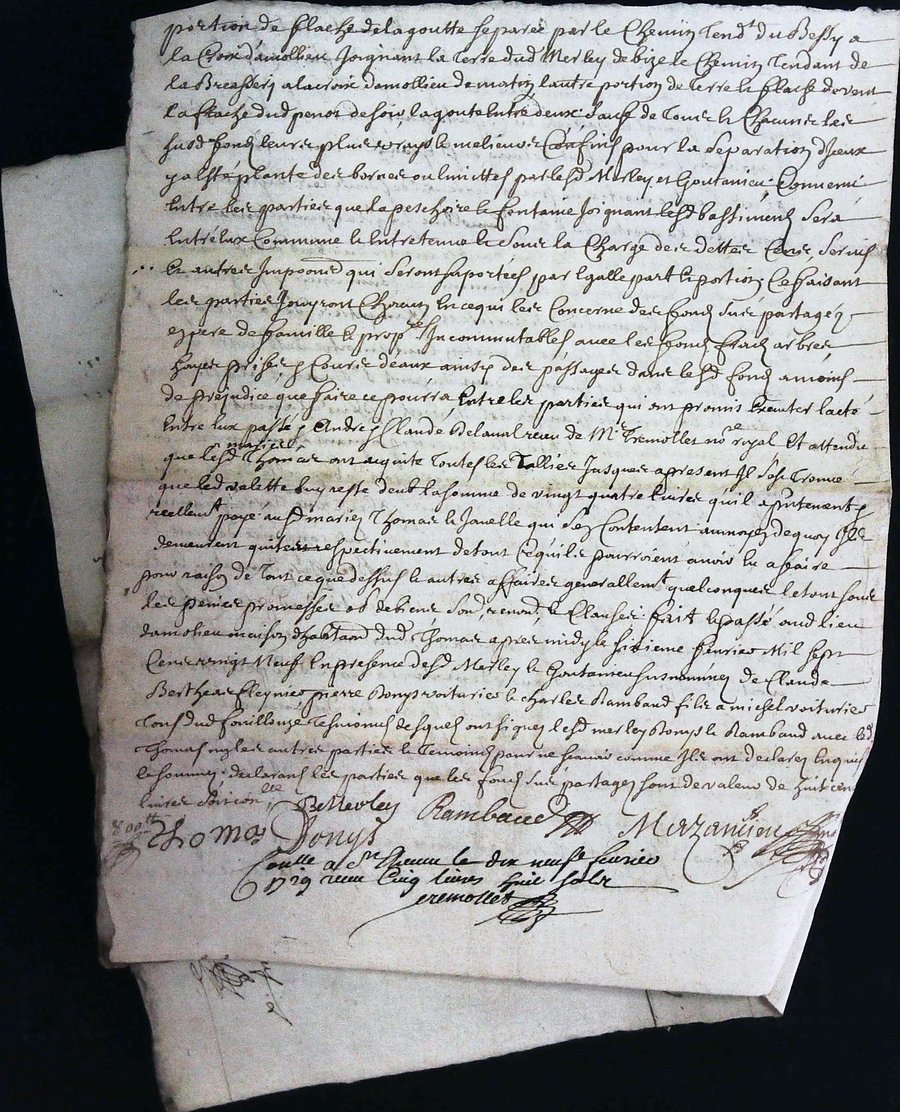 portion de flache de la goutte separée par le Chemin Tend.t du Bessy a
la Croix damollieu Joignant la Terre dud Merley de bize le Chemin Tendant de
la a la croix damollieu de matin lautre portion de terre et flache de vent
la flache dud de soir la goute entre deux sauf de Tous et Chacuns les
susd fonds leurs plus vrays et melieurs Confins pour la separation diceux
y a esté planté des bornes ou limittes par lesd Merley et Convenu
entre les parties que la peschoire et fontaine Joignant lesd bastiments sera
entre eux Commune et entretenue et sous la Charge des dettes Cens servis
et autres Imposons qui seront suportées par Egalle part et portion, Ce faisant
les parties Jouyront Chacun en ce qui les Concerne des fonds sus partagés
en pere de famille et prop.res Incommutables avec les fonds fruits arbres
hayes prises et Cours deaux ainsy des passages dans lesd fonds a moins
de prejudice que faire ce pourra entre les parties qui ont promis executer lacte
entre eux passé Claude Delaval receu de M.e Tremollet no.re royal Et attendu
que lesd mariés Thomas ont aquité Toutes les Tallies Jusques a present Il sest Trouvé
que led valette luy reste deub la somme de vingt quatre livres quil a presentem.t
reellem.t payé ausd mariés Thomas et Javelle qui sen Contentent au moyen de quoy Ils
demeurent quites respectivement de tout ce quils pourroient avoir eu a faire
pour raison de Tout ce que dessus et autres affaires generallem.t quelconques le tout sous
les peines promesses ob. de biens soub. renond. et Clauses fait et passé aud lieu
damolieu maison dhabitaon dud Thomas apres midy le sixieme feuvrier Mil sept
Cens vingt Neuf En presence desd Merley et susnommés de Claude
Bertheas pierre Donys voiturier et Charles Rambaud fils a michel voiturier
Tous dud fouillouze Tesmoins desquels ont signes lesd merley Donys et Rambaud avec led
Thomas non les autres parties et Temoins pour ne scavoir comme Ils ont declaré Enquis
et sommés declarant les parties que les fonds sus partagés sont de valeur de huit cens
livres
800 tt Thomas Donys Merley Rambaud
Conlle a St Etienne le dix neuf feuvrier
1729 receu Cinq livres huit sols
Tremollet